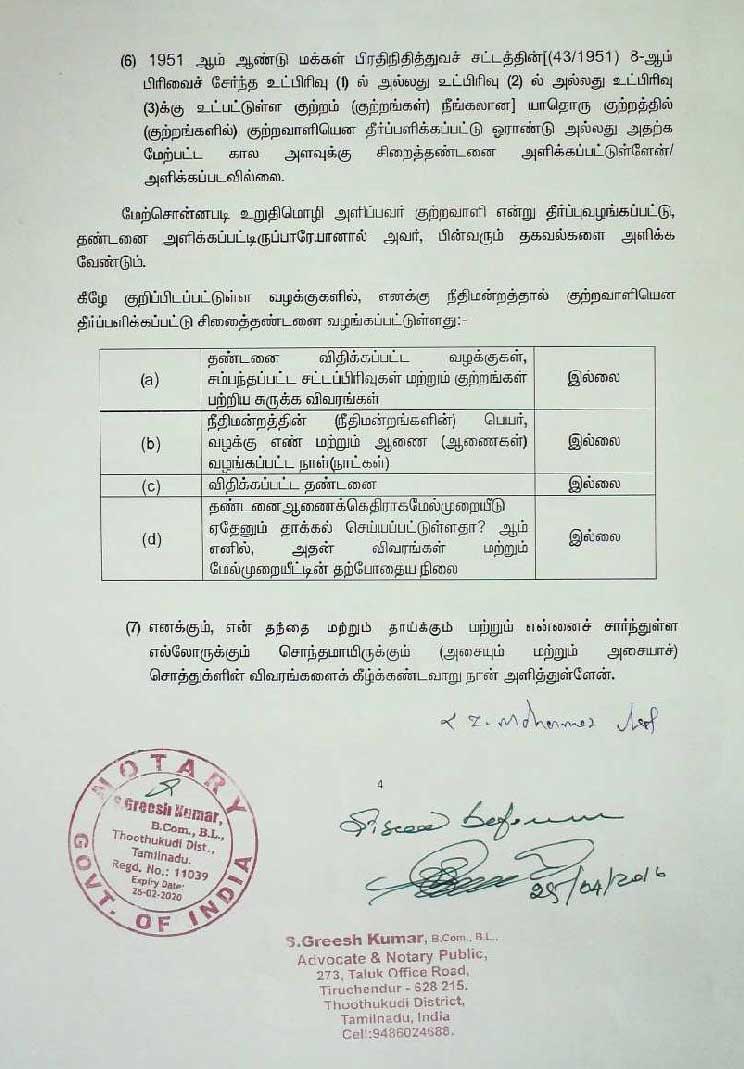 (6) 1951 ஆம் ஆண்டு மக்கள் பிரதிநிதித்துவச் சட்டத்தின்[(43/1951) 8-ஆம்
பிரிவைச் சேர்ந்த உட்பிரிவு (I) ல் அல்லது உட்பிரிவு (2) ல் அல்லது உட்பிரிவு
(3)க்கு உட்பட்டுள்ள குற்றம் (குற்றங்கள்) நீங்கலான] யாதொரு குற்றத்தில்
(குற்றங்களில்) குற்றவாளியென தீர்ப்பளிக்கப்பட்டு ஓராண்டு அல்லது அதற்க
மேற்பட்ட கால அளவுக்கு சிறைத்தண்டனை அளிக்கப்பட்டுள்ளேன்/
அளிக்கப்படவில்லை.
மேற்சொன்னபடி உறுதிமொழி அளிப்பவர் குற்றவாளி என்று தீர்ப்புவழங்கப்பட்டு,
தண்டனை அளிக்கப்பட்டிருப்பாரேயானால் அவர், பின்வரும் தகவல்களை அளிக்க
வேண்டும்.
கீழே குறிப்பிடப்பட்டுள்ள வழக்குகளில், எனக்கு நீதிமன்றத்தால் குற்றவாளியென
தீர்ப்பளிக்கப்பட்டு சிறைத்தண்டனை வழங்கப்பட்டுள்ளது:-
(a) தண்டனை விதிக்கப்பட்ட வழக்குகள், சம்பந்தப்பட்ட சட்டப்பிரிவுகள் மற்றும் குற்றங்கள் பற்றிய சுருக்க விவரங்கள் இல்லை
(b) நீதிமன்றத்தின் (நீதிமன்றங்களின்) பெயர், வழக்கு எண் மற்றும் ஆணை (ஆணைகள்) வழங்கப்பட்ட நாள்(நாட்கள்) இல்லை
(c) விதிக்கப்பட்ட தண்டனை இல்லை
(d) தண்டனைஆணைக்கெதிராகமேல்முறையீடு ஏதேனும் தாக்கல் செய்யப்பட்டுள்ளதா? ஆம் எனில், அதன் விவரங்கள் மற்றும் மேல்முறையீட்டின் தற்போதைய நிலை இல்லை
(7) எனக்கும், என் தந்தை மற்றும் தாய்க்கும் மற்றும் என்னைச் சார்ந்துள்ள
எல்லோருக்கும் சொந்தமாயிருக்கும் (அசையும் மற்றும் அசையாச்)
சொத்துக்ளின் விவரங்களைக் கீழ்க்கண்டவாறு நான் அளித்துள்ளேன்.
4
NOTARY
GOVT. OF INDIA
S.Greesh Kumar,
B.Com., B.L.,
Thoothukudi Dist.,
Tamilnadu.
Regd. No.: 11039
Expiry Date:
25-02-2020
before
25/04/2016
S.Greesh Kumar, B.Com., B.L.,
Advocate & Notary Public,
273, Taluk Office Road,
Tiruchendur - 628 215.
Thoothukudi District,
Tamilnadu, India
Cell:9486024688.